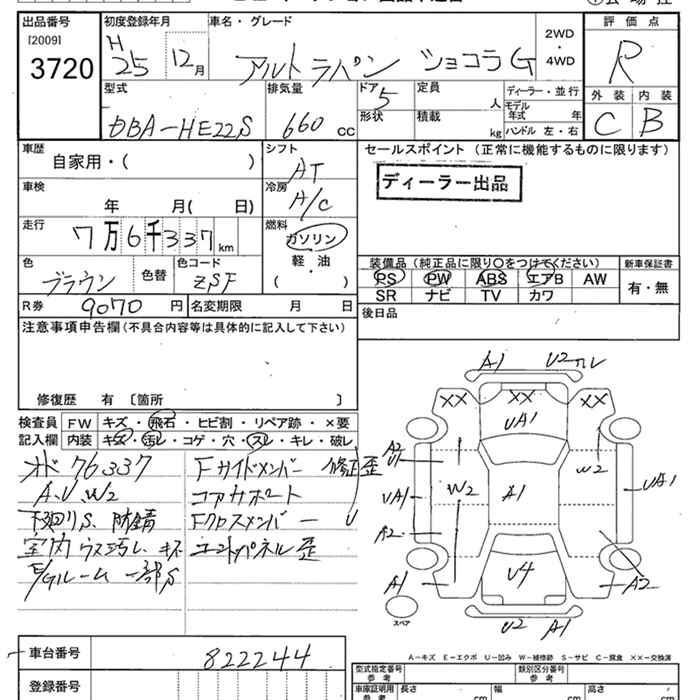 出品番号 初度登録年月 車名・グレード 評価点
[2009] H 2WD
3720 25 12月 アルト ラパン ショコラ G ・ 4WD R
型式 排気量 ドア 定員 ディーラー・並行 外装 内装
DBA-HE22S 660 cc 5 人 モデル年式 年 C B
形状 積載 kg ハンドル 左・右
車歴 シフト セールスポイント (正常に機能するものに限ります)
自家用・( ) AT
車検 冷房 ディーラー出品
年 月( 日) A/C
走行 燃料
7万6千337km ガソリン
軽油
・
( )
色 色替 色コード 装備品(純正品に限り○をつけてください) 新車保証書
ブラウン ZSF PS PW ABS エアB AW 有・無
SR ナビ TV カワ
R券 9070 円 名変期限 月 日
後日品
注意事項申告欄(不具合内容等は具体的に記入して下さい)
修復歴 有 〔箇所 〕
検査員 FW キズ・飛石・ヒビ割・リペア跡・×要
記入欄 内装 キズ・汚レ・コゲ・穴・スレ・キレ・破レ
76337 Fサイドメンバー 修正歪
A.U.W2 コアサポート
下廻りS、防錆 Fクロスメンバー U
室内ウス汚レ、キズ パネル歪
E/Gルーム一部S
A1 U2
XX XX XX
UA1
A2
U1 W2
UA1 W2 A1 UA1
A2
A1 U4 A2
スペア
U2 A1
A-キズ E-エクボ U-凹み W-補修跡 S-サビ C-腐食 ××-交換済
車台番号 822244
登録番号
型式指定番号 類別区分番号
参考 参考
車庫証明用 長さ 幅 高さ
参考 cm cm cm